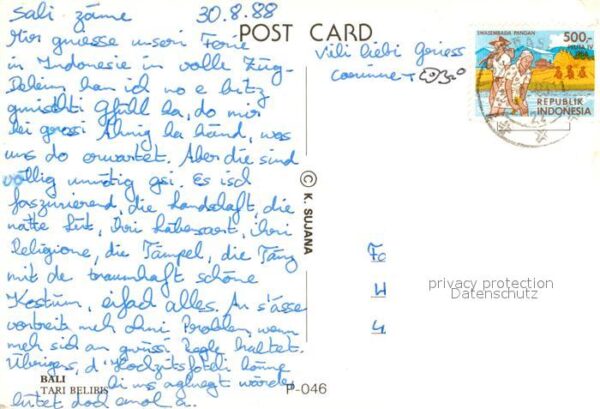 Sali zäme 30.8.88
Mir gniesse unseri Ferie
in Indonesie in volle Züg.
Dehim han ich no e bitz
gmischti Gfühl ka, do mir
kei grossi Ahnig ka händ, was
uns do erwartet. Aber die sind
völlig unnötig gsi. Es isch
faszinierend, die Landschaft, die
nätte Lüt, ihri Läbesart, ihri
Religione, die Tämpel, die Tänz
mit de traumhaft schöne
Kostüm, eifach alles. An s'ässe
vertreit meh ohni Problem, wenn
meh sich an gwüssi Regle haltet.
Übrigens, d'Hochzitsfoteli könne
bi uns agluegt wärde,
lütet doch emol a.
POST CARD
Vili liebi Grüess
Corinne +
SWASEMBADA PANGAN
500,-
PELITA IV
REPUBLIK
INDONESIA
© K. SUJANA
privacy protection
Datenschutz
BALI
TARI BELIBIS
P-046